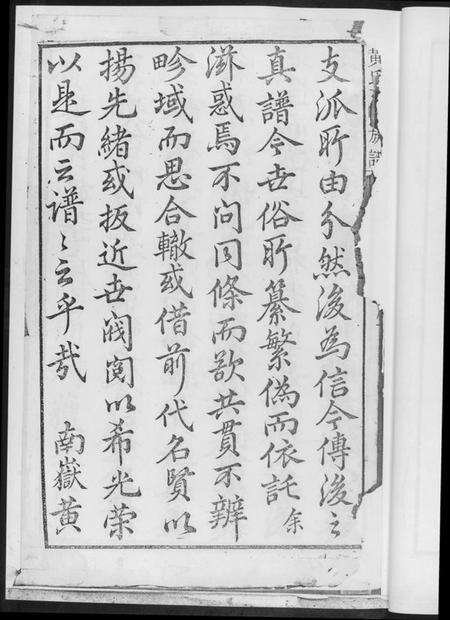 黄氏族譜
支派所由分然後為信令傳後〻
真譜今世俗所纂繁偽而依託余
滋惑焉不問同條而欲共貫不辨
畛域而思合轍或借前代名賢以
揚先緒或扳近世閥閱以希光荣
以是而云譜〻云乎哉 南嶽黄